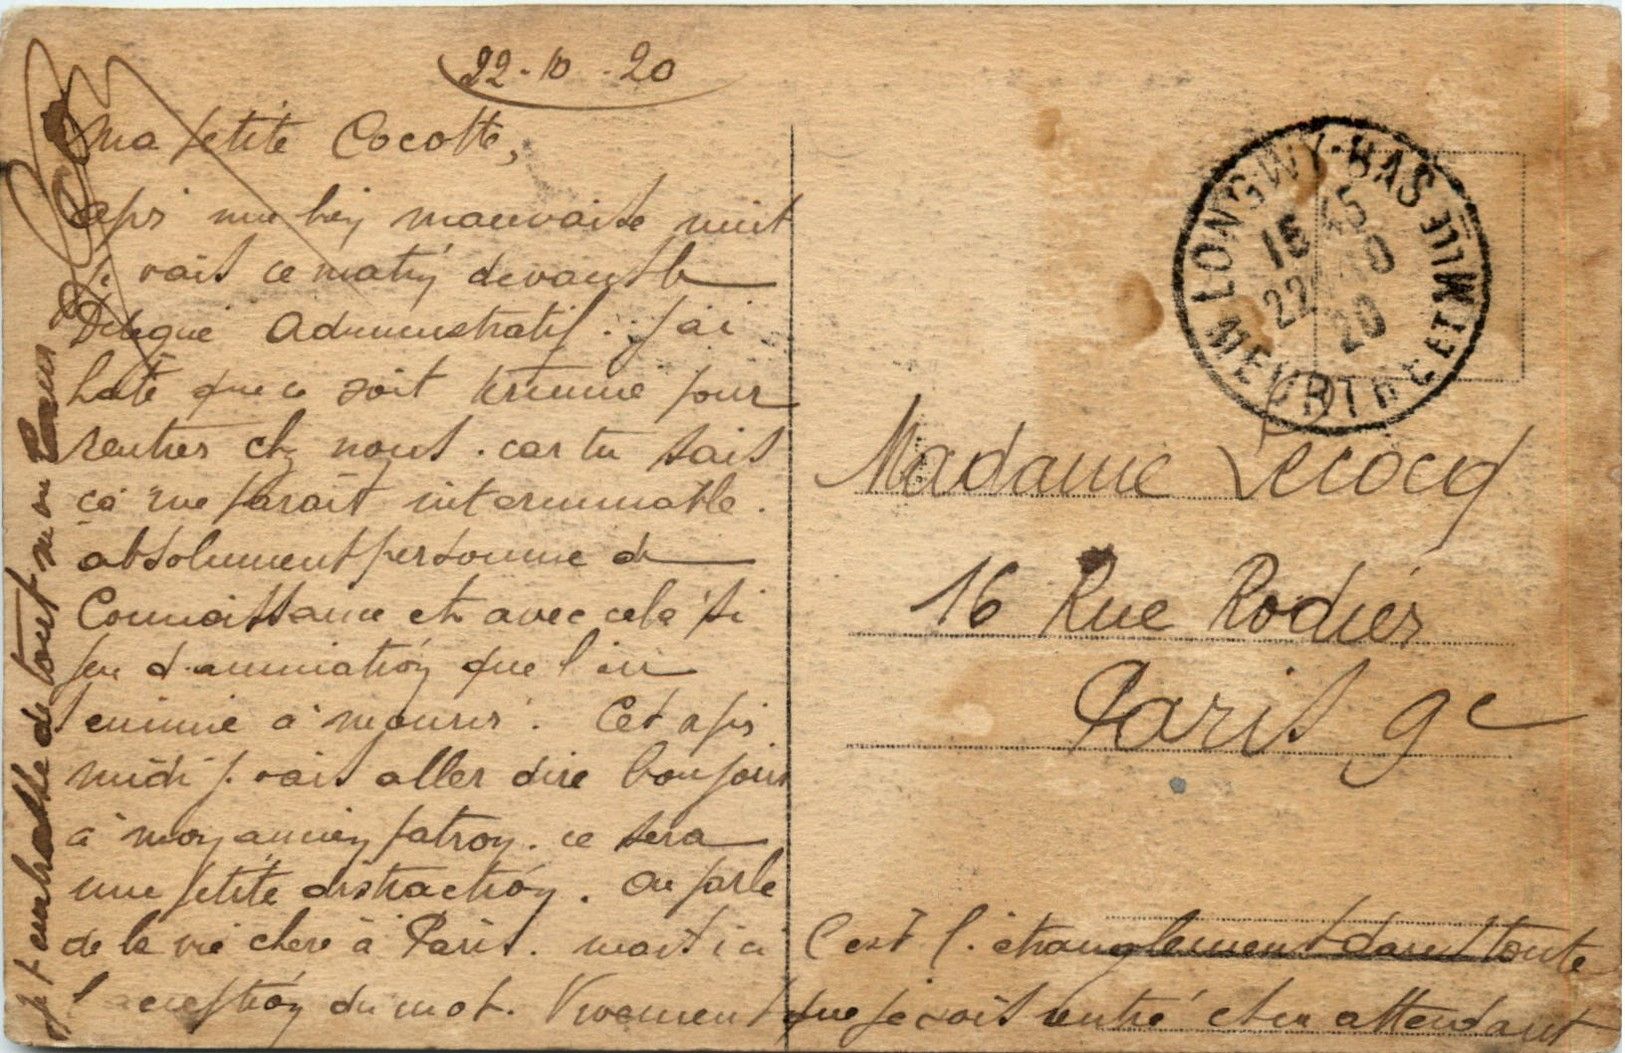 22-10-20
Ma petite Cocotte,
après une bien mauvaise nuit
je vais ce matin devant le
Délégué Administratif. J'ai
hate que ce soit terminé pour
rentrer chez nous. car tu sais
ça me parait interminable.
absolument personne de
Connaissance et avec cela si
peu d'animation que l'on
s'ennuie à mourir. Cet après
midi je vais aller dire bonjour
à mon ancien patron. ce sera
une petite distraction. On parle
de la vie chère à Paris. mais ici
C'est l'étranglement dans toute
l'acception du mot. Vivement
que je sois rentré et en attendant
je t'embrasse de tout mon Coeur
LONGWY-BAS
16 45
22 10
20
MEURTHE ET MLLE
Madame Lecocq
16 Rue Rodier
Paris 9e